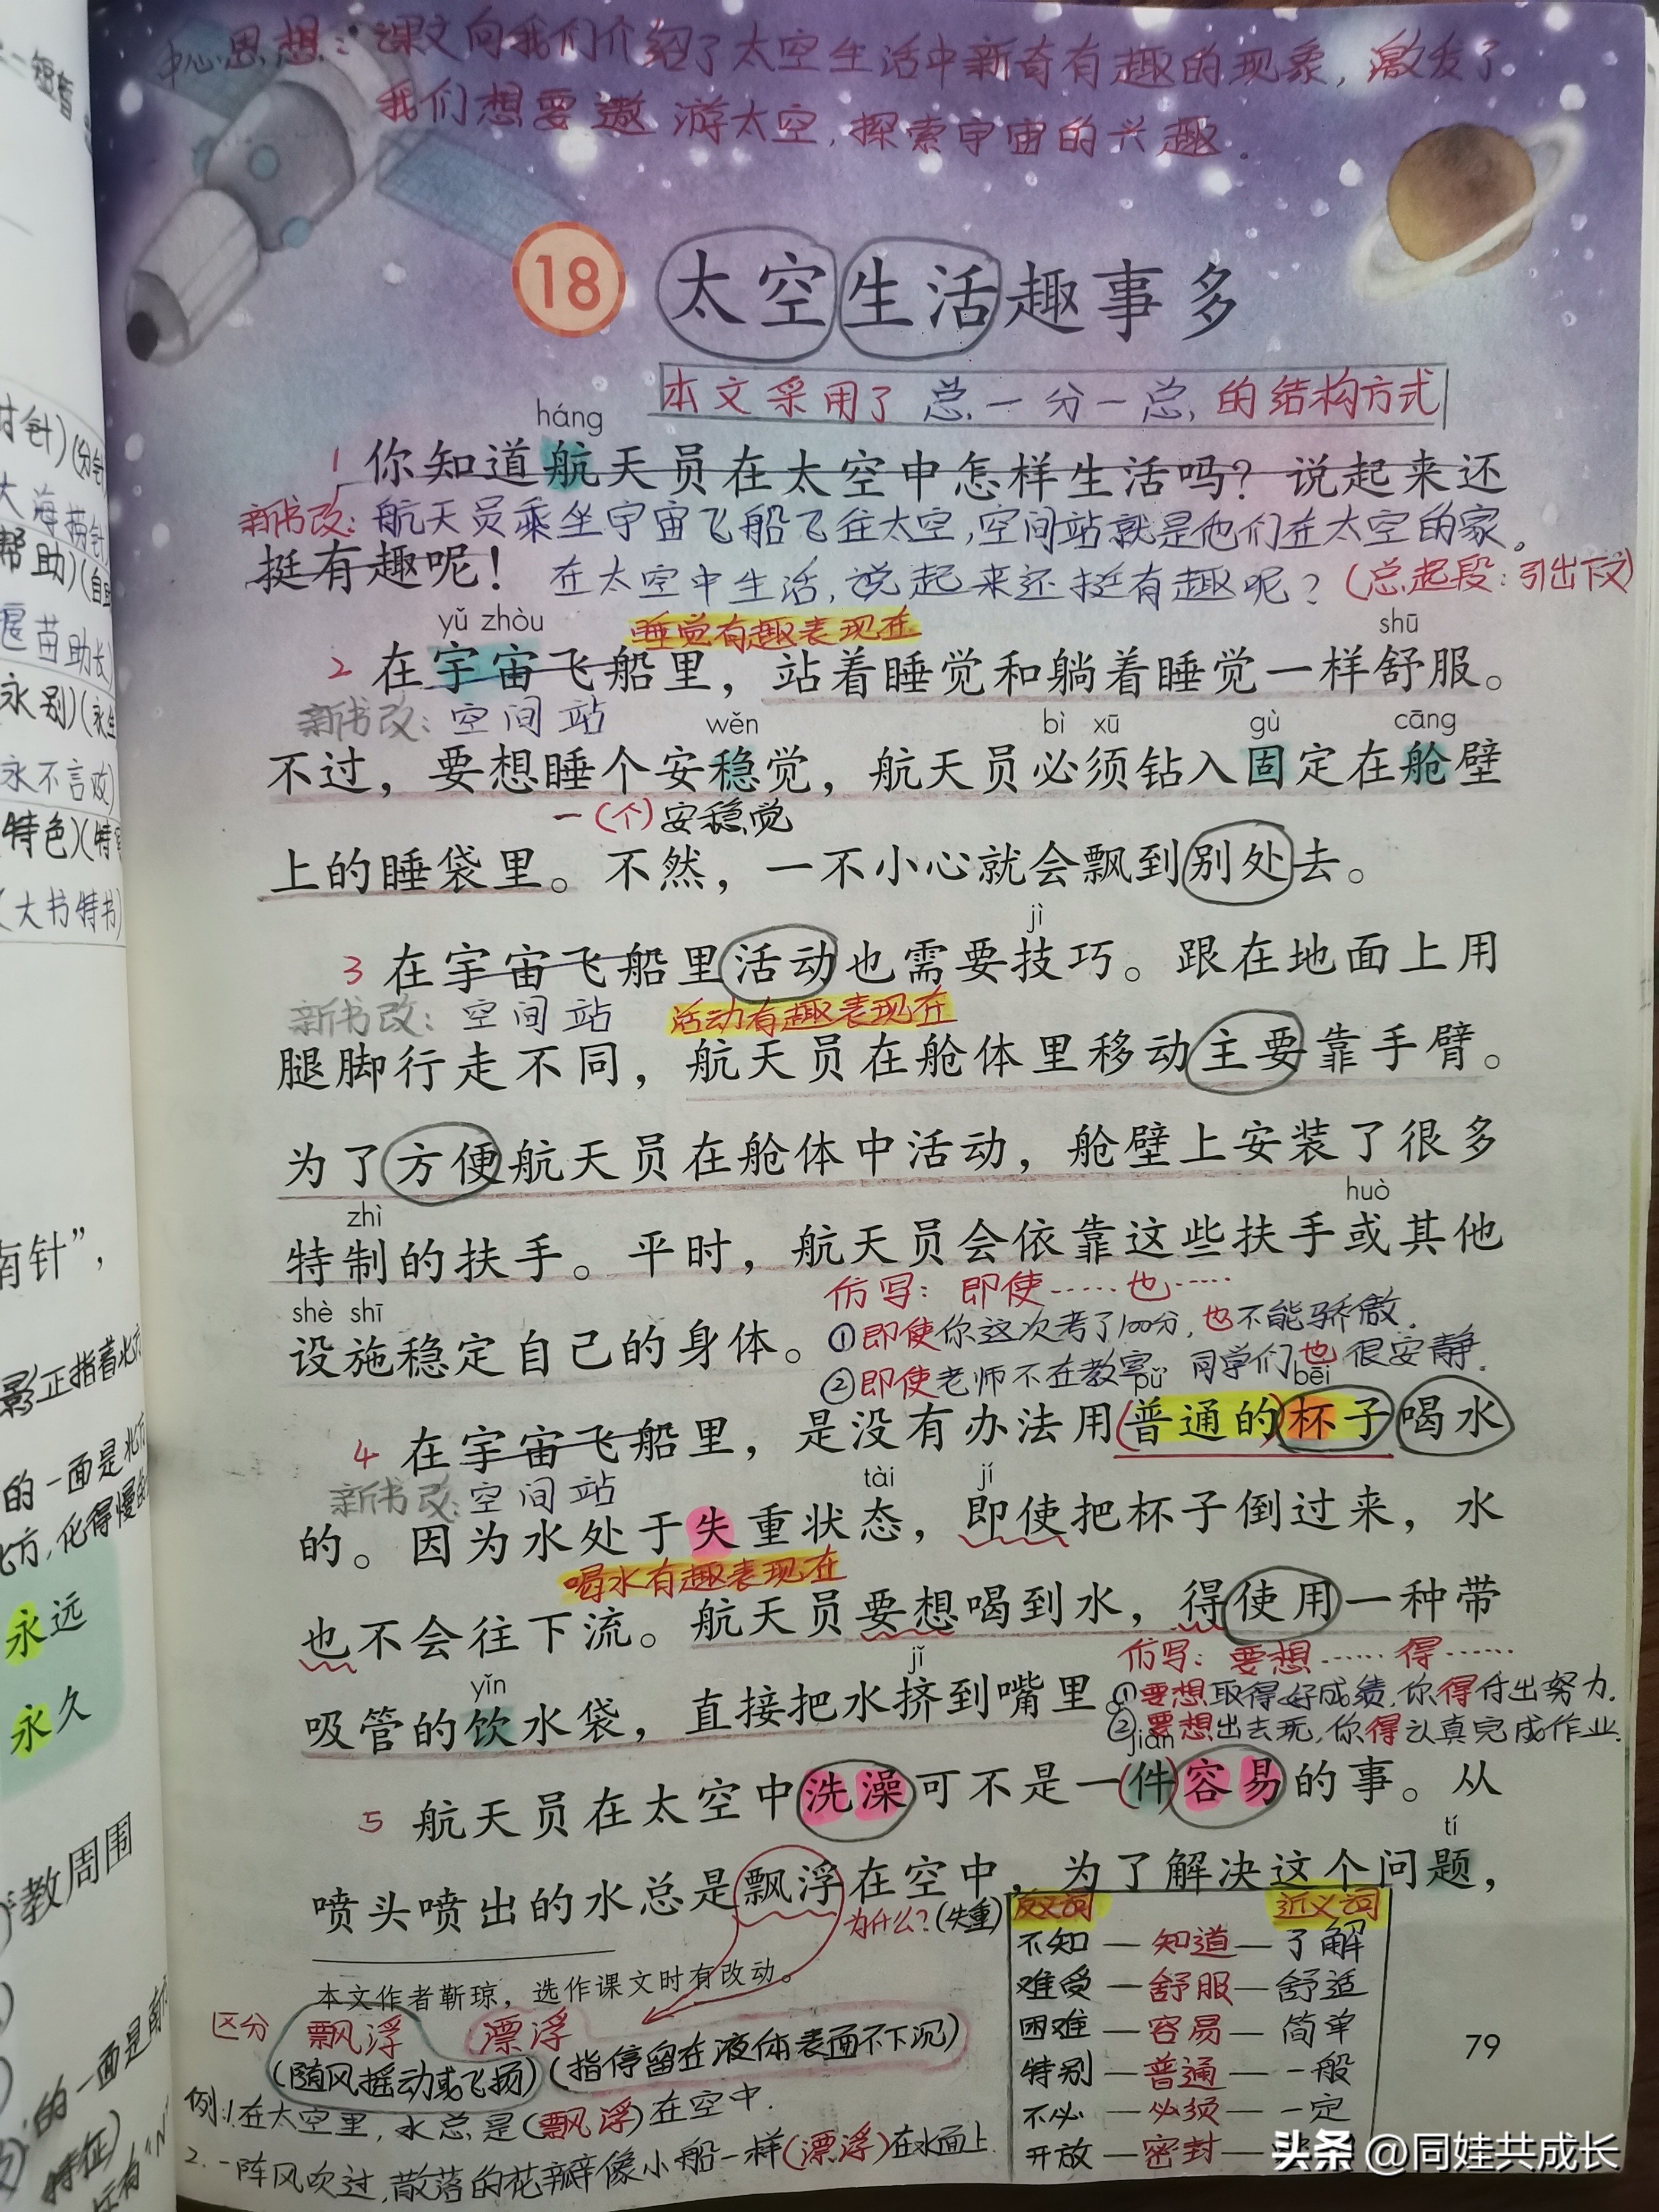 中心思想：课文向我们介绍了太空生活中新奇有趣的现象，激发了
我们想要遨游太空，探索宇宙的兴趣。
18 太空生活趣事多
本文采用了总一分一总，的结构方式
háng
1 你知道航天员在太空中怎样生活吗？说起来还
新书改：航天员乘坐宇宙飞船飞往太空，空间站就是他们在太空的家。
挺有趣呢！ 在太空中生活，说起来还挺有趣呢？（总起段：引出下文）
yǔ zhòu 睡觉有趣表现在 shū
2 在宇宙飞船里，站着睡觉和躺着睡觉一样舒服。
新书改：空间站 wěn bì xū gù cāng
不过，要想睡个安稳觉，航天员必须钻入固定在舱壁
一（个）安稳觉
上的睡袋里。不然，一不小心就会飘到别处去。
jì
3 在宇宙飞船里活动也需要技巧。跟在地面上用
新书改：空间站 活动有趣表现在
腿脚行走不同，航天员在舱体里移动主要靠手臂。
为了方便航天员在舱体中活动，舱壁上安装了很多
zhì huò
特制的扶手。平时，航天员会依靠这些扶手或其他
仿写：即使……也……
shè shī
设施稳定自己的身体。 ①即使你这次考了100分，也不能骄傲．
②即使老师不在教室，同学们也很安静．
pǔ bēi
4 在宇宙飞船里，是没有办法用（普通的）杯子喝水
新书改：空间站 tài jí
的。因为水处于失重状态，即使把杯子倒过来，水
喝水有趣表现在
也不会往下流。航天员要想喝到水，得使用一种带
仿写：要想……得……
yǐn jǐ
吸管的饮水袋，直接把水挤到嘴里。①要想取得好成绩，你得付出努力．
②要想出去玩，你得认真完成作业．
jiàn
5 航天员在太空中洗澡可不是一（件）容易的事。从
tí
喷头喷出的水总是飘浮在空中，为了解决这个问题，
为什么？（失重）
本文作者靳琼，选作课文时有改动。
区分 飘浮 漂浮
（随风摇动或飞扬）（指停留在液体表面不下沉）
例：1.在太空里，水总是（飘浮）在空中．
2.一阵风吹过，散落的花瓣像小船一样（漂浮）在水面上．
反义词 近义词
不知—知道—了解
难受—舒服—舒适
困难—容易—简单
特别—普通—一般
不必—必须—一定
开放—密封—
79
头条 @同娃共成长
大海捞针
永别
永不言败
特色
大书特书
南针”，
永远
永久
教周围